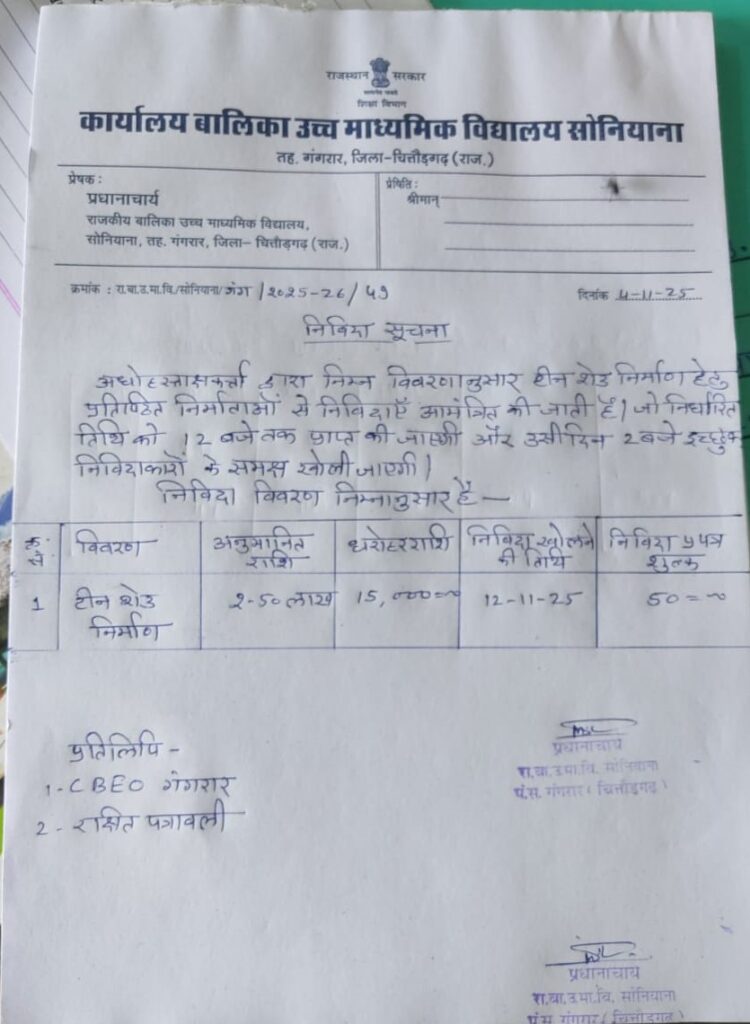 राजस्थान सरकार
शिक्षा विभाग
कार्यालय बालिका उच्च माध्यमिक विद्यालय सोनियाना
तह. गंगरार, जिला-चित्तौड़गढ़ (राज.)
प्रेषक :
प्रधानाचार्य
राजकीय बालिका उच्च माध्यमिक विद्यालय,
सोनियाना, तह. गंगरार, जिला- चित्तौड़गढ़ (राज.)
प्रेषिति :
श्रीमान्
क्रमांक : रा.बा.उ.मा.वि./सोनियाना/ /2025-26/49 दिनांक 4-11-25
निविदा सूचना
अधोहस्ताक्षकर्ता द्वारा निम्न विवरणानुसार टीन शेड निर्माण हेतु
प्रतिष्ठित निर्माताओं से निविदाएँ आमंत्रित की जाती है। जो निर्धारित
तिथि को 12 बजे तक प्राप्त की जाएगी और उसी दिन 2 बजे इच्छुक
निविदाकारों के समक्ष खोली जाएगी।
निविदा विवरण निम्नानुसार है —
क्र. सं. विवरण अनुमानित राशि धरोहर राशि निविदा खोलने की तिथि निविदा प्रपत्र शुल्क
1 टीन शेड निर्माण 2-50 लाख 15,000=00 12-11-25 50=00
प्रतिलिपि -
1- CBEO गंगरार
2- रक्षित पत्रावली
प्रधानाचार्य
रा.बा.उ.मा.वि. सोनियाना
पं.स. गंगरार (चित्तौड़गढ़)
प्रधानाचार्य
रा.बा.उ.मा.वि. सोनियाना
पं.स. गंगरार (चित्तौड़गढ़)